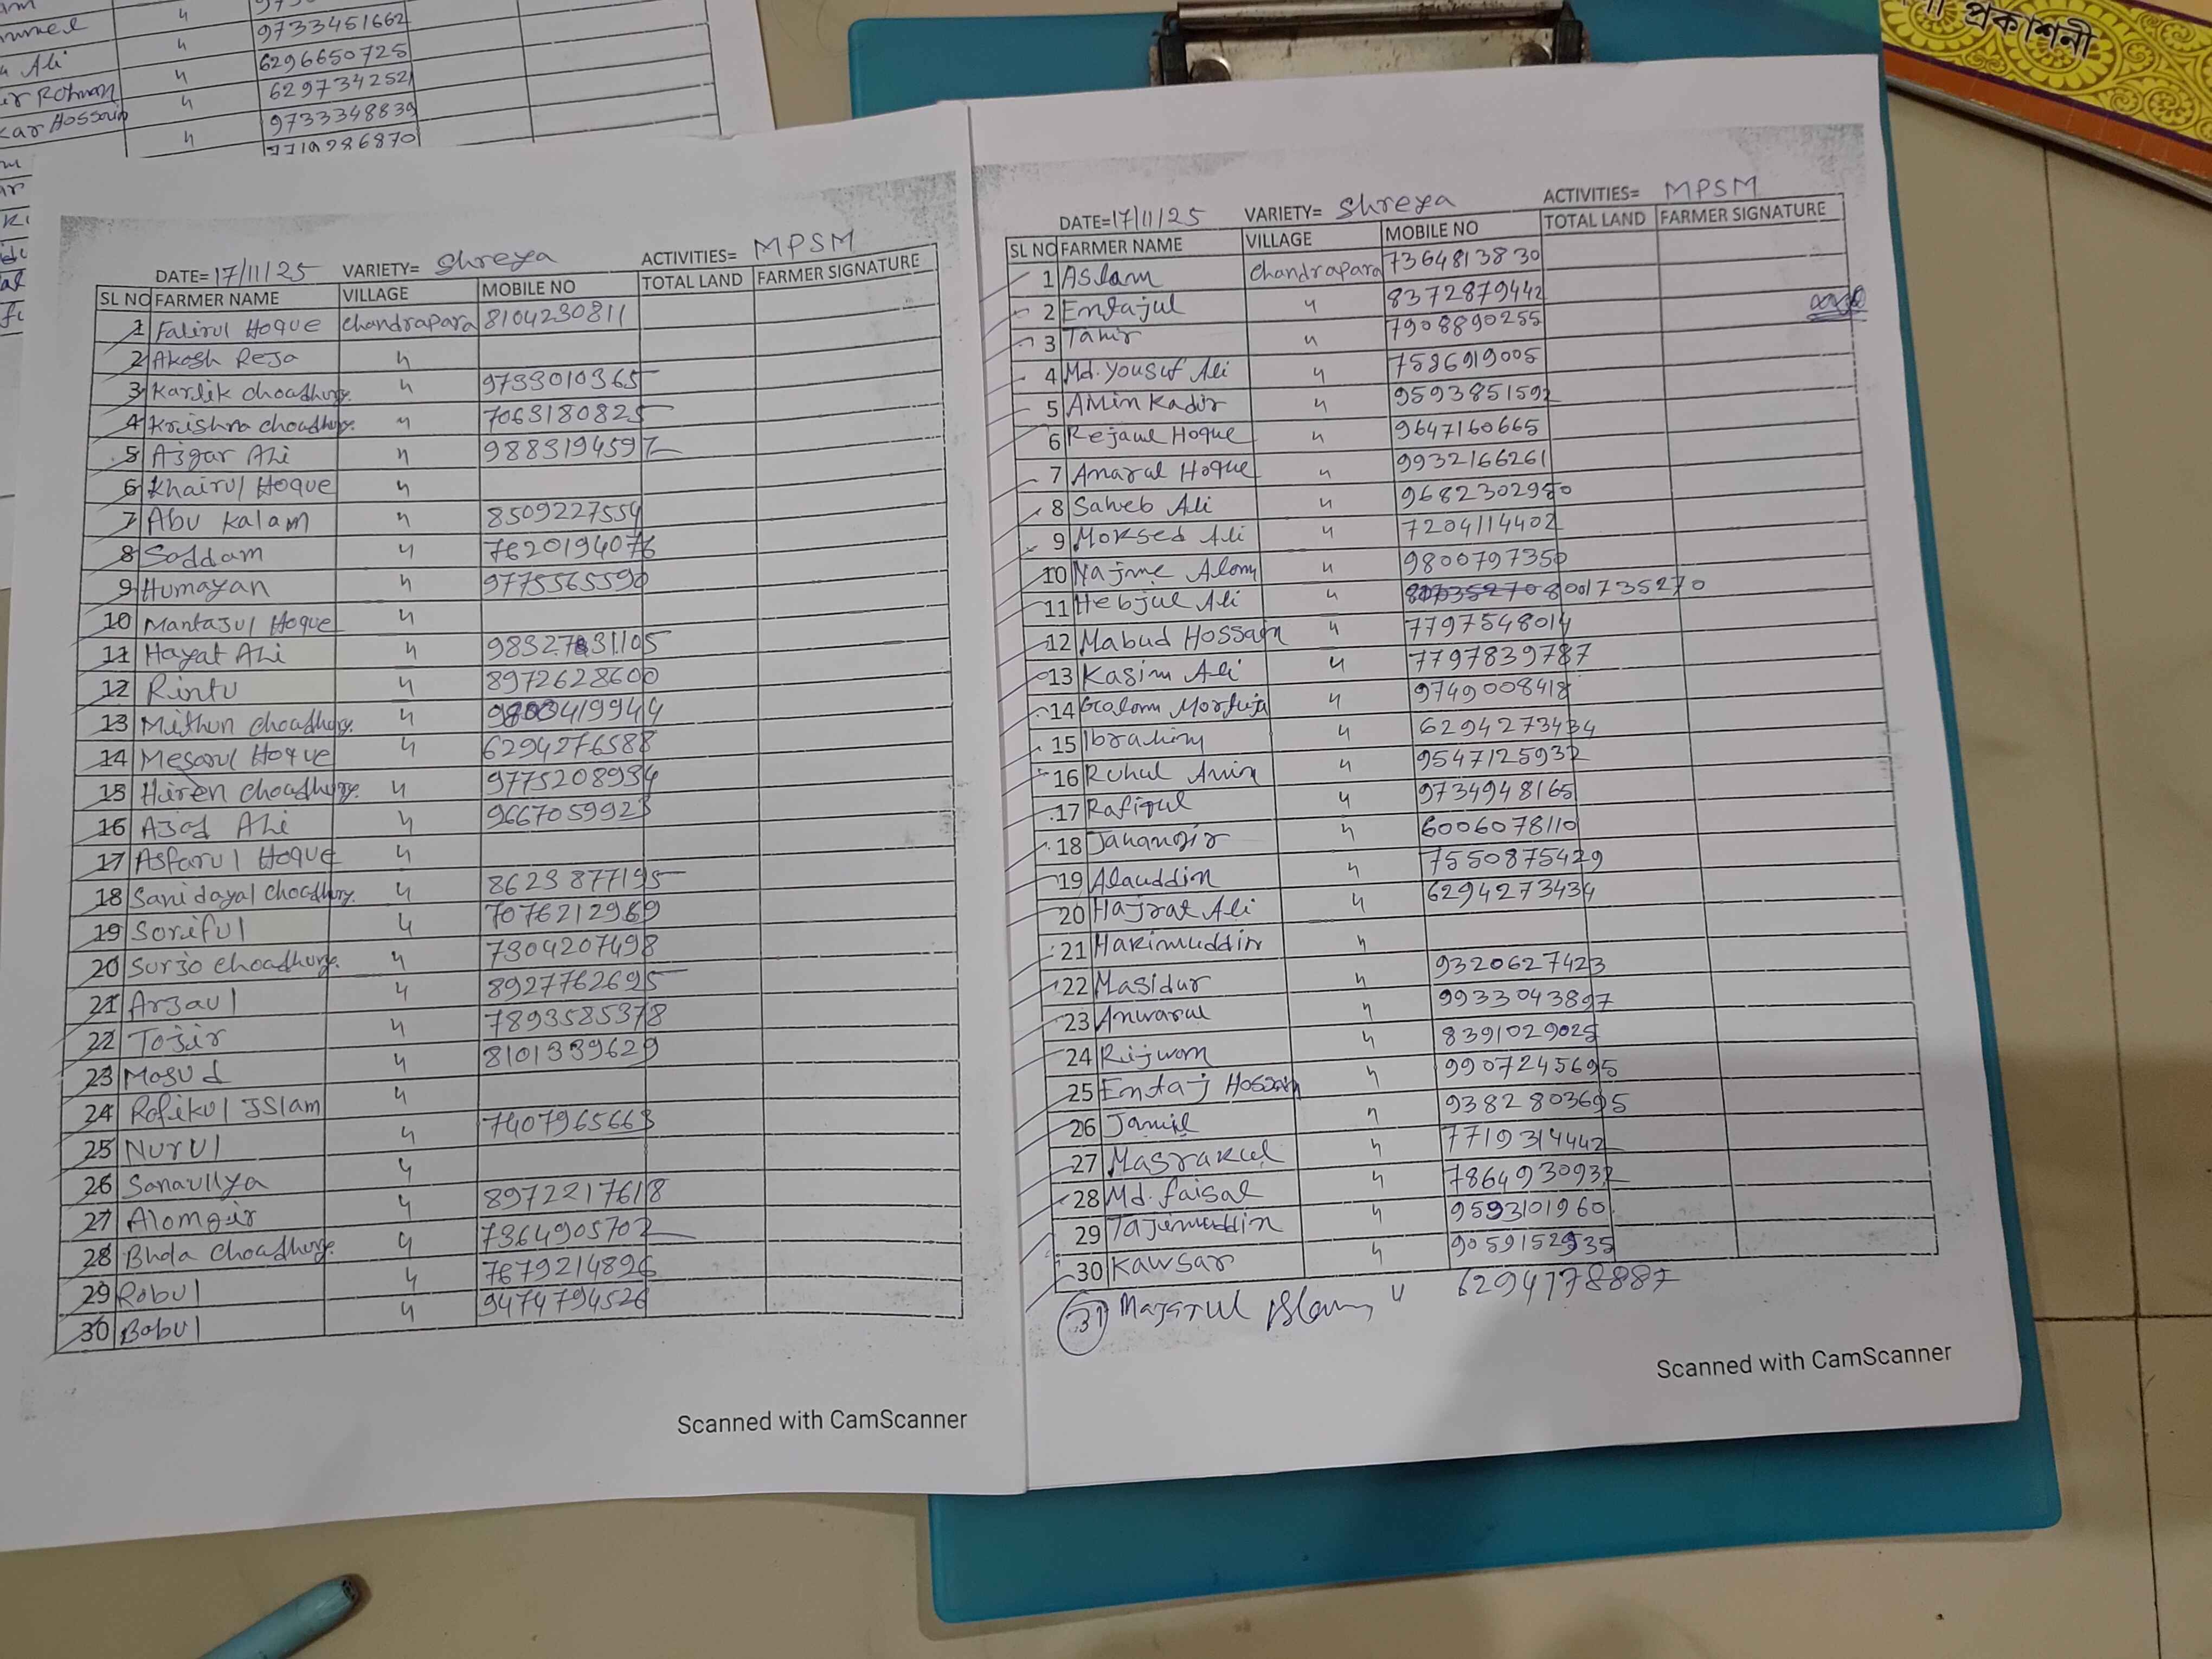 9733451662
Ali 6296650725
6297342521
Hossain 9733348839
7719286870
প্রকাশনী
DATE= 17/11/25 VARIETY= Shreya ACTIVITIES= MPSM
SL NO FARMER NAME VILLAGE MOBILE NO TOTAL LAND FARMER SIGNATURE
1 Falirul Hoque Chandrapara 8104230811
2 Akash Reja "
3 Kartik Choudhury. " 9733010365
4 Krishna Choudhury. " 7063180825
5 Azgar Ali " 9883194597
6 Khairul Hoque "
7 Abu Kalam " 8509227554
8 Saddam " 7620194076
9 Humayan " 9775565590
10 Mantajul Hoque "
11 Hayat Ali " 9832731105
12 Rintu " 8972628600
13 Mithun Choudhury. " 9803419944
14 Mesarul Hoque " 6294276588
15 Hiren Choudhury. " 9775208954
16 Azad Ali " 9667059923
17 Asfarul Hoque "
18 Sanidayal Choudhury. " 8623877195
19 Soriful " 7076212969
20 Surjo Choudhury. " 7304207498
21 Arzaul " 8927762695
22 Tojir " 7893585378
23 Masud " 8101339629
24 Rofikul Islam "
25 Nurul " 7407965663
26 Sanaullya "
27 Alomgir " 8972217618
28 Bhola Choudhury. " 7364905702
29 Robul " 7679214896
30 Babul " 9474794526
Scanned with CamScanner
DATE= 17/11/25 VARIETY= Shreya ACTIVITIES= MPSM
SL NO FARMER NAME VILLAGE MOBILE NO TOTAL LAND FARMER SIGNATURE
1 Aslam Chandrapara 7364813830
2 Emtajul " 8372879442
3 Tahir " 7908890255
4 Md. Yousuf Ali " 7586919005
5 Amin Kadir " 9593851592
6 Rejaul Hoque " 9647160665
7 Anarul Hoque " 9932166261
8 Saheb Ali " 9682302980
9 Moksed Ali " 7204114402
10 Najme Alom " 9800797350
11 Hebjul Ali " 8001735270
12 Mabud Hossain " 7797548014
13 Kasim Ali " 7797839787
14 Golam Mortuja " 9749008418
15 Ibrahim " 6294273434
16 Ruhul Amin " 9547125932
17 Rafiqul " 9734948165
18 Jahangir " 6006078110
19 Alauddin " 7550875429
20 Hajrat Ali " 6294273434
21 Hakimuddin "
22 Masidur " 9320627423
23 Anwarul " 9933043897
24 Rijwan " 8391029025
25 Emtaj Hossain " 9907245695
26 Jamil " 9382803695
27 Masrakul " 7719314442
28 Md. faisal " 7864930932
29 Tajemuddin " 9593101960
30 Kawsar " 9059152935
31 Majarul Islam " 6294178887
Scanned with CamScanner